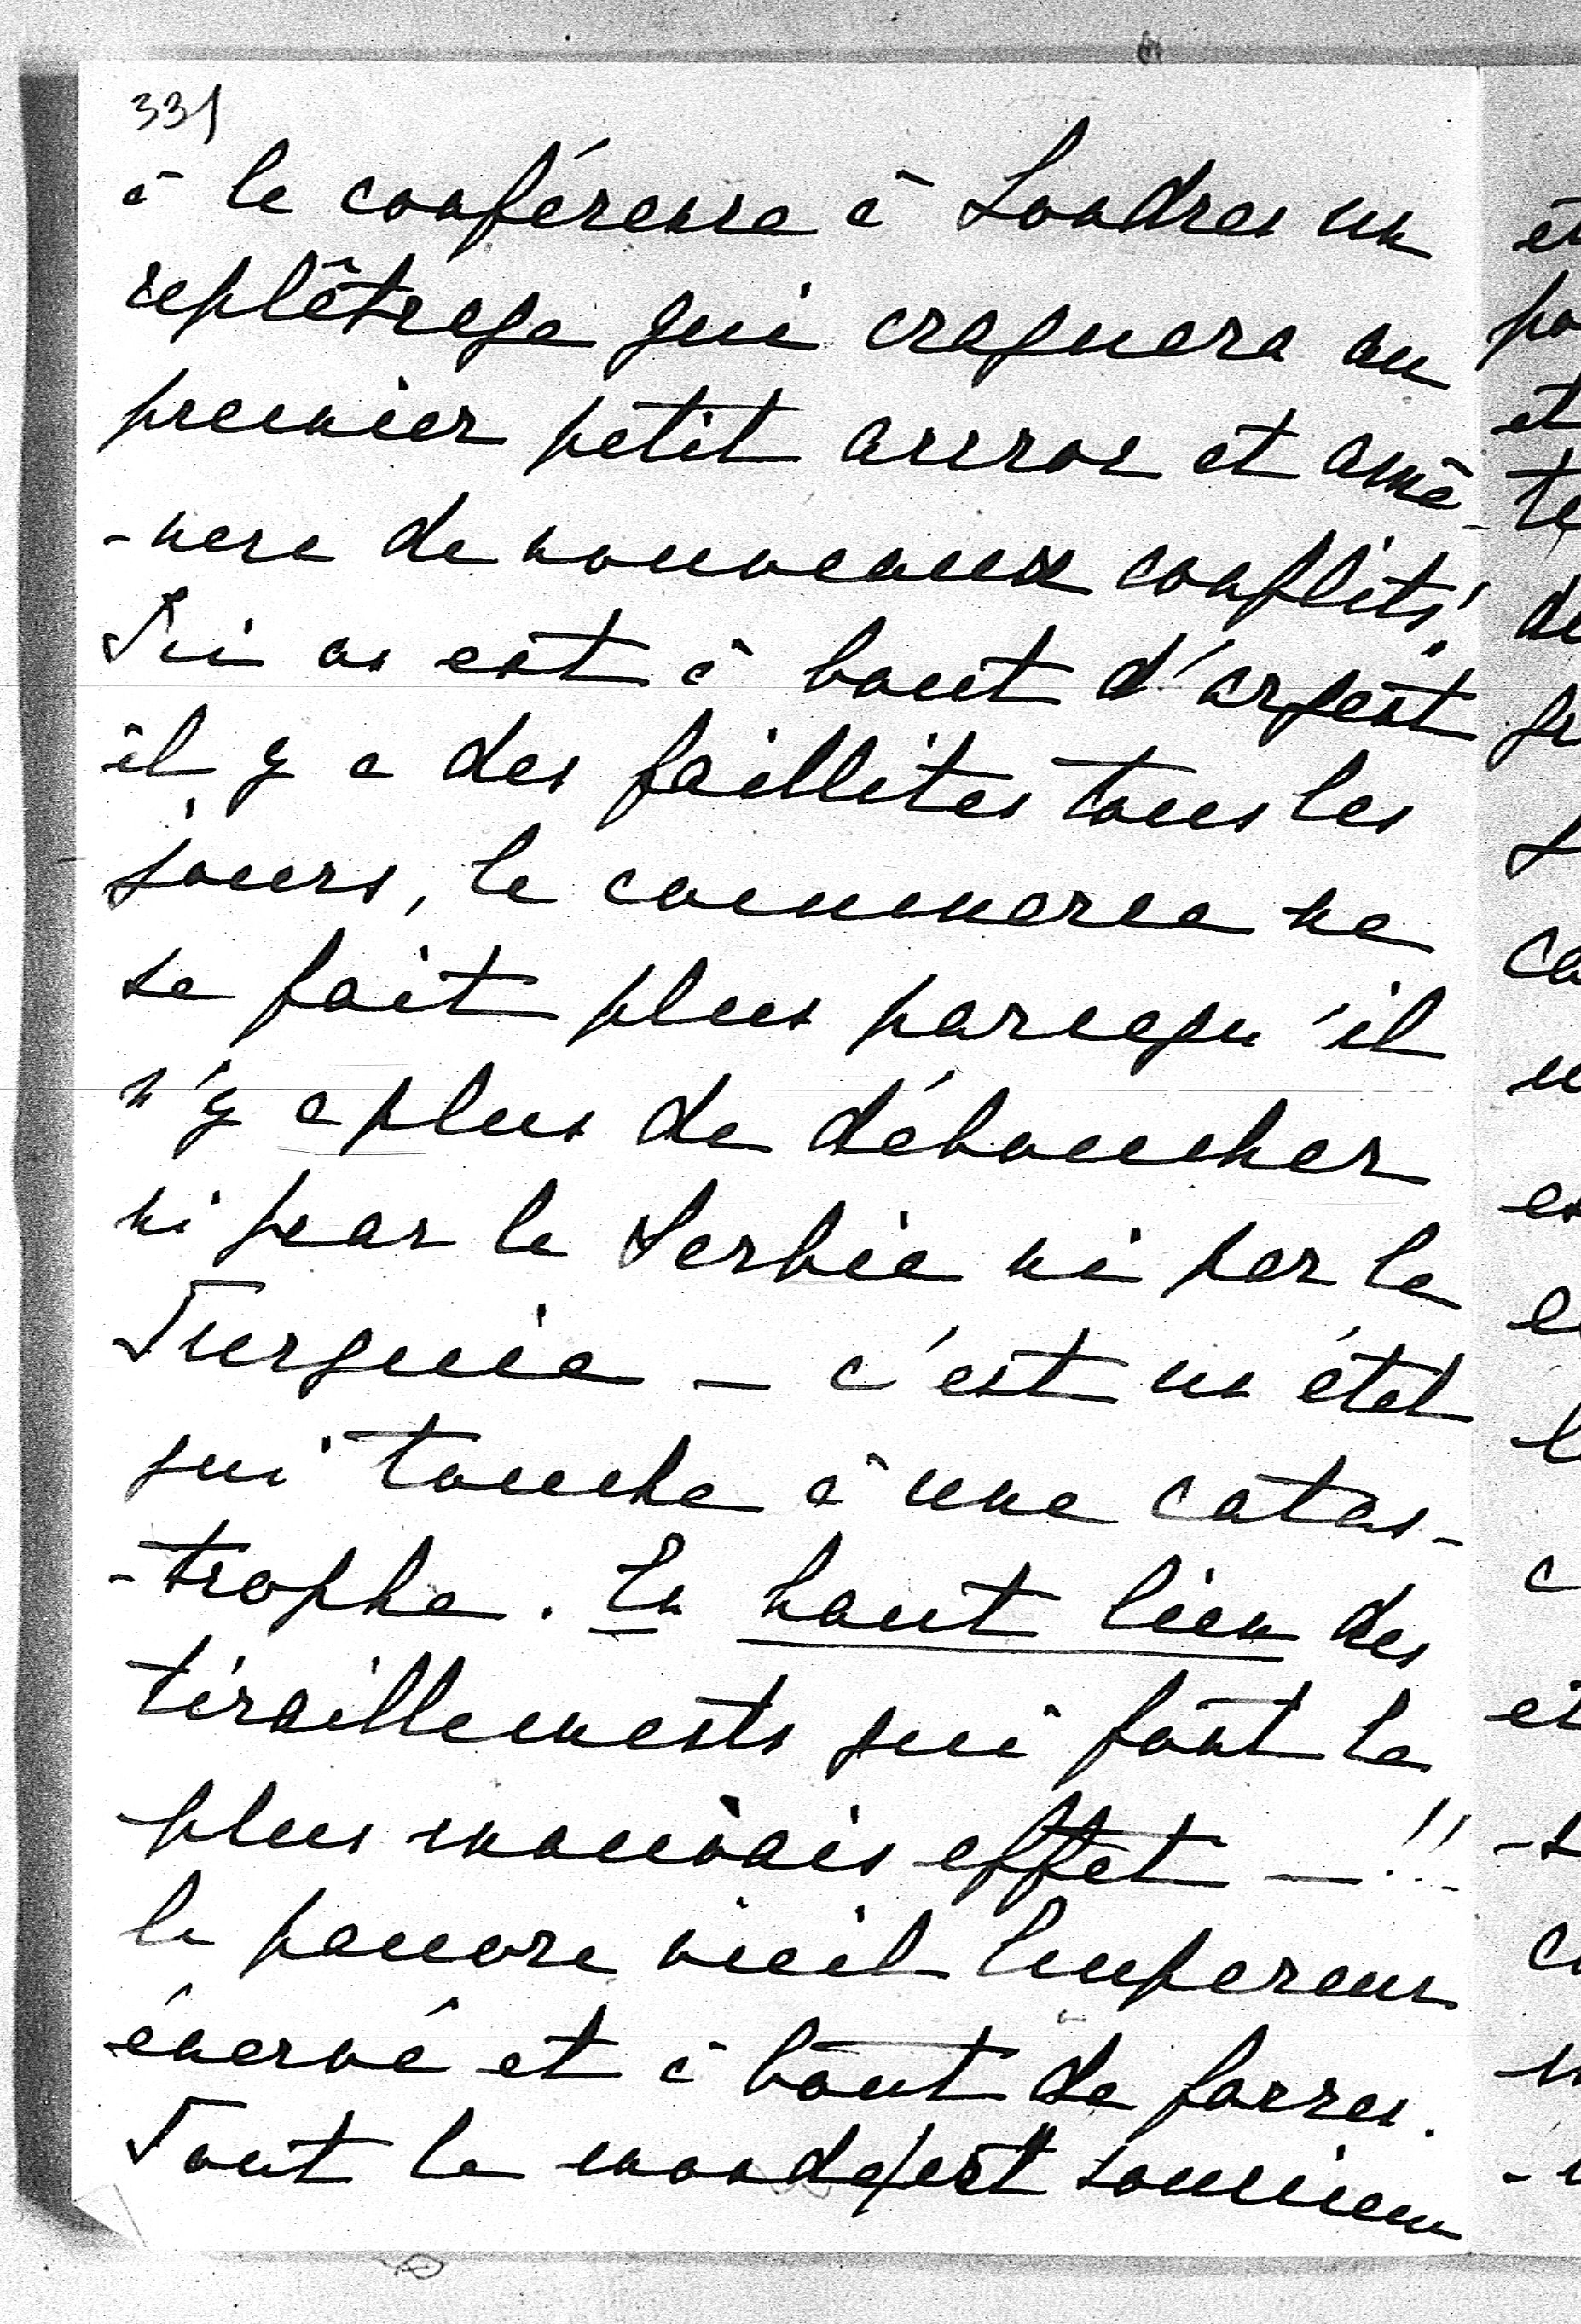 331
à la conférence à Londres un
replâtrage qui craquera au
premier petit accroc et amè-
-nera de nouveaux conflits!
Ici on est à bout d'argent
il y a des faillites tous les
jours, le commerce ne
se fait plus parcequ'il
n'y a plus de déboucher
ni par la Serbie ni par la
Turquie — c'est un état
qui touche à une catas-
-trophe. En haut lieu des
tiraillements qui font le
plus mauvais effet — !!
le pauvre vieil Empereur
énervé et à bout de forces.
Tout le monde est soucieux